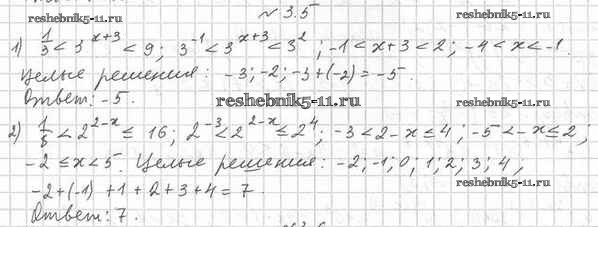 reshebnik5-11.ru № 3.5 reshebnik5-11.ru
1) 1/3 < 3^(x+3) < 9; 3^(-1) < 3^(x+3) < 3^2; -1 < x+3 < 2; -4 < x < -1.
Целые решения: -3; -2; -3+(-2) = -5.
Ответ: -5. reshebnik5-11.ru
2) 1/8 < 2^(2-x) ≤ 16; 2^(-3) < 2^(2-x) ≤ 2^4; -3 < 2-x ≤ 4; -5 < -x ≤ 2;
-2 ≤ x < 5. Целые решения: -2; -1; 0; 1; 2; 3; 4;
-2+(-1)+1+2+3+4 = 7. reshebnik5-11.ru
reshebnik5-11.ru
Ответ: 7.